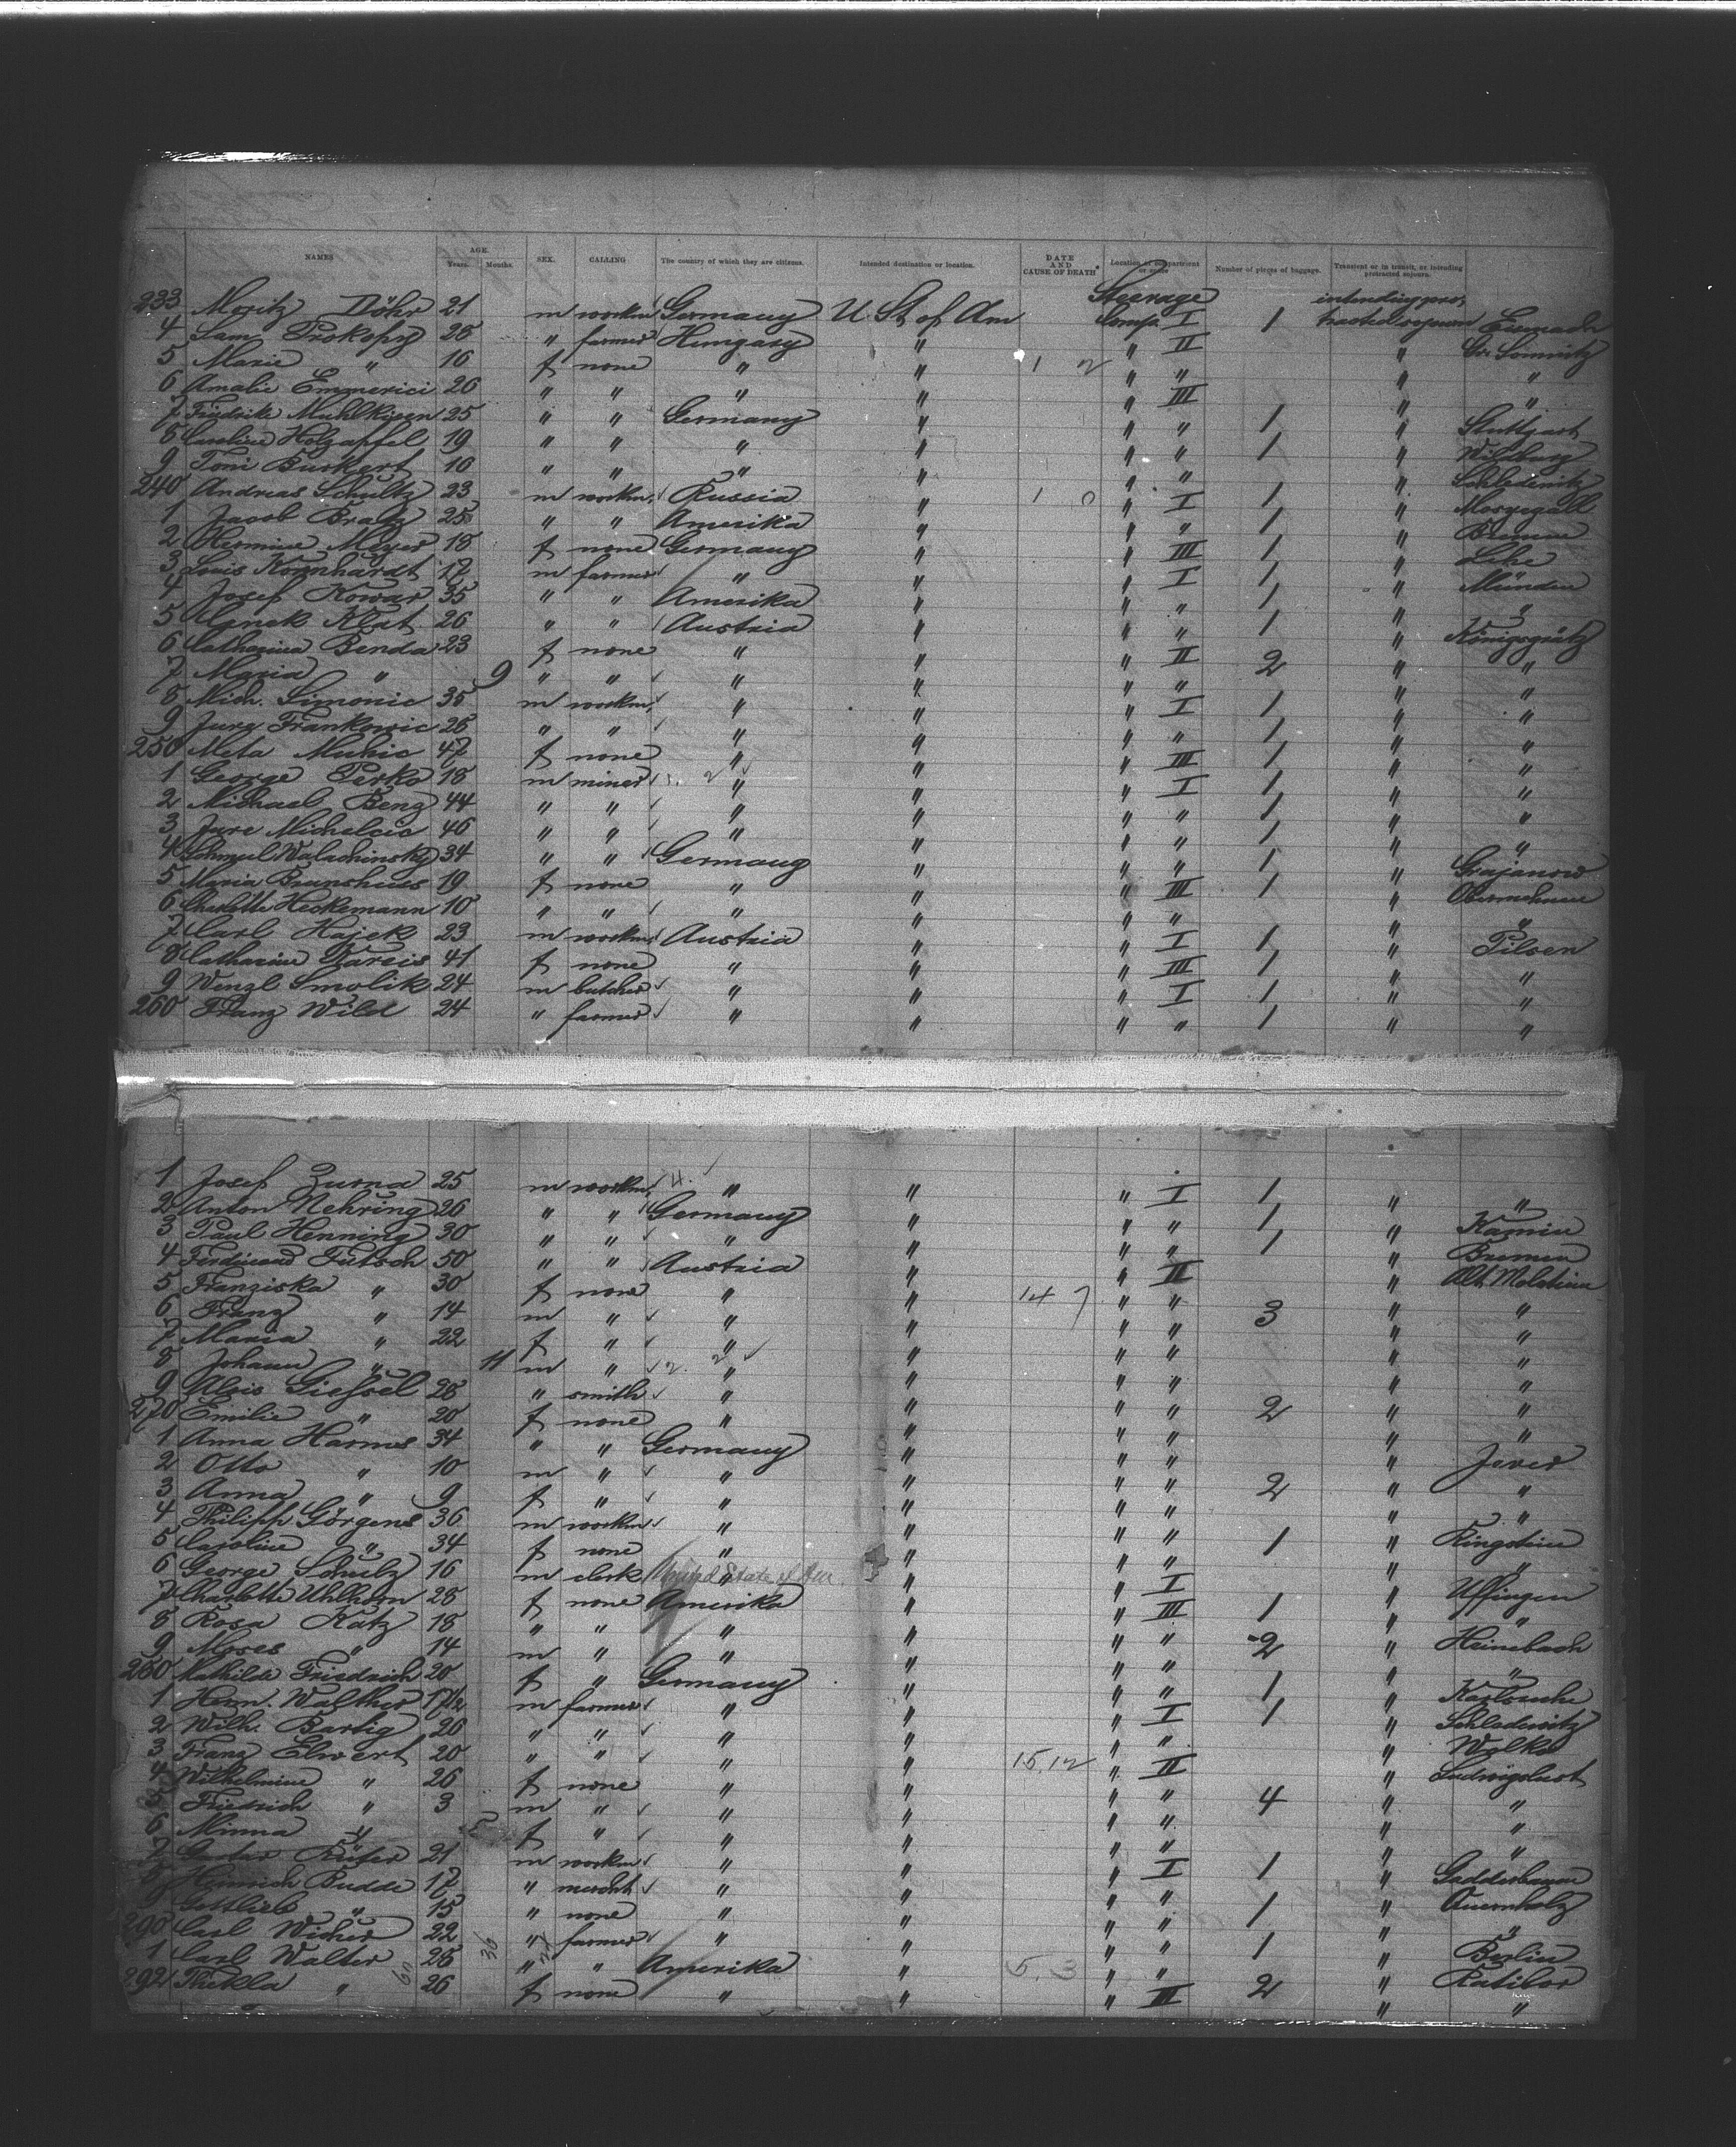 NAMES AGE. Years. Months. SEX. CALLING The country of which they are citizens. Intended destination or location. DATE AND CAUSE OF DEATH Location of compartment or space Number of pieces of baggage. Transient or in transit, or intending protracted sojourn.
Steerage intending pro-
233 Moritz Döhr 21 m workm Germany U. St. of Am Comp. I 1 tracted sojourn Eisenach
4 Sam. Prokopy 28 " farmer Hungary " " II "
5 Marie " 16 f none " " 1 2 " " " "
6 Amalie Emmerici 26 " " " " " III " "
7 Friedrike Muhlkisen 25 " " Germany " " " 1 " Stuttgart
8 Caroline Holzapfel 19 " " " " " " 1 " Wilsburg
9 Toni Burkert 10 " " " " " " " Schledewitz
240 Andreas Schultz 23 m workm. Russia " 1 0 " I 1 "
1 Jacob Bratz 25 " " Amerika " " " 1 " Bremen
2 Hermine Meyer 18 f none Germany " " III 1 " Lehe
3 Louis Kornhardt 17 m farmer " " " I 1 " Münden
4 Josef Kowar 35 " " Amerika " " " 1 " "
5 Klat 26 " " Austria " " " 1 " Königsgrätz
6 Catharina Benda 23 f none " " " II 2 " "
7 Maria " 9 " " " " " " " "
8 Mich. Simonic 35 m workm. " " " I 1 " "
9 Jury Frankovic 26 " " " " " " 1 " "
250 Meta Muhic 47 f none " " " III 1 " "
1 George Perko 18 m miner " " " I 1 " "
2 Michael Beng 44 " " " " " " 1 " "
3 Jure Michelcic 46 " " " " " " 1 " "
4 Schmul Walachinsky 34 " " Germany " " " 1 " Grajanow
5 Maria Branshues 19 f none " " " III 1 "
6 Charlotte Heckemann 10 " " " " " " " "
7 Carl Hajek 23 m workm Austria " " I 1 " Pilsen
8 Catharine Warcis 41 f none " " " III 1 " "
9 Wenzl Smolik 24 m butcher " " " I 1 " "
260 Franz Wild 24 " farmer " " " " 1 " "
1 Josef Zurna 25 m workm. 4. " " " I 1 " "
2 Anton Nehring 26 " " Germany " " " 1 " Kamin
3 Paul Henning 30 " " " " " " 1 " Bremen
4 Ferdinand Futsch 50 " " Austria " " II " Alt Moletein
5 Franziska " 30 f none " " 14 7 " " " "
6 Franz " 14 m " " " " " 3 " "
7 Maria " 22 f " " " " " " "
8 Johann " 11 m " 2. 2 " " " " " "
9 Alois Giessel 28 " smith " " " " 2 " "
270 Emilie " 20 f none " " " " " "
1 Anna Harms 34 " " Germany " " " " Jever
2 Otto " 10 m " " " " " 2 " "
3 Anna " 9 f " " " " " " "
4 Philipp Görgens 36 m workm " " " " 1 " Ringstein
5 Caroline " 34 f none " " " " " "
6 George Schulz 16 m clerk United State of Am " " " I " Uffingen
7 Charlotte Uhlhorn 28 f none Amerika " " III 1 " "
8 Rosa Katz 18 " " " " " " 2 " Heinebach
9 Moses " 14 m " " " " " " "
280 Mathilde Friedrich 20 f " Germany " " " 1 " Karlsruhe
1 Herm. Walther 17½ m farmer " " " I 1 " Schledewitz
2 Wilh. Bartig 26 " " " " " " "
3 Franz Elwert 20 " " " " 15.12 " II " Ludwigslust
4 Wilhelmine " 26 f none " " " " 4 " "
5 Friedrich " 3 m " " " " " " "
6 Minna " f " " " " " " "
7 Küfer 21 m workm " " " I 1 " Gadderbaum
8 Heinrich Budde 17 " mercht " " " " 1 " Quernholz
9 Gottlieb " 15 " none " " " " " "
290 Carl Wicher 22 " farmer " " " " 1 " Berlin
1 Carl Walter 28 " " Amerika " 5. 3 " " 2 " Ratibor
292 Thekla " 60 26 36 f none " " " III " "